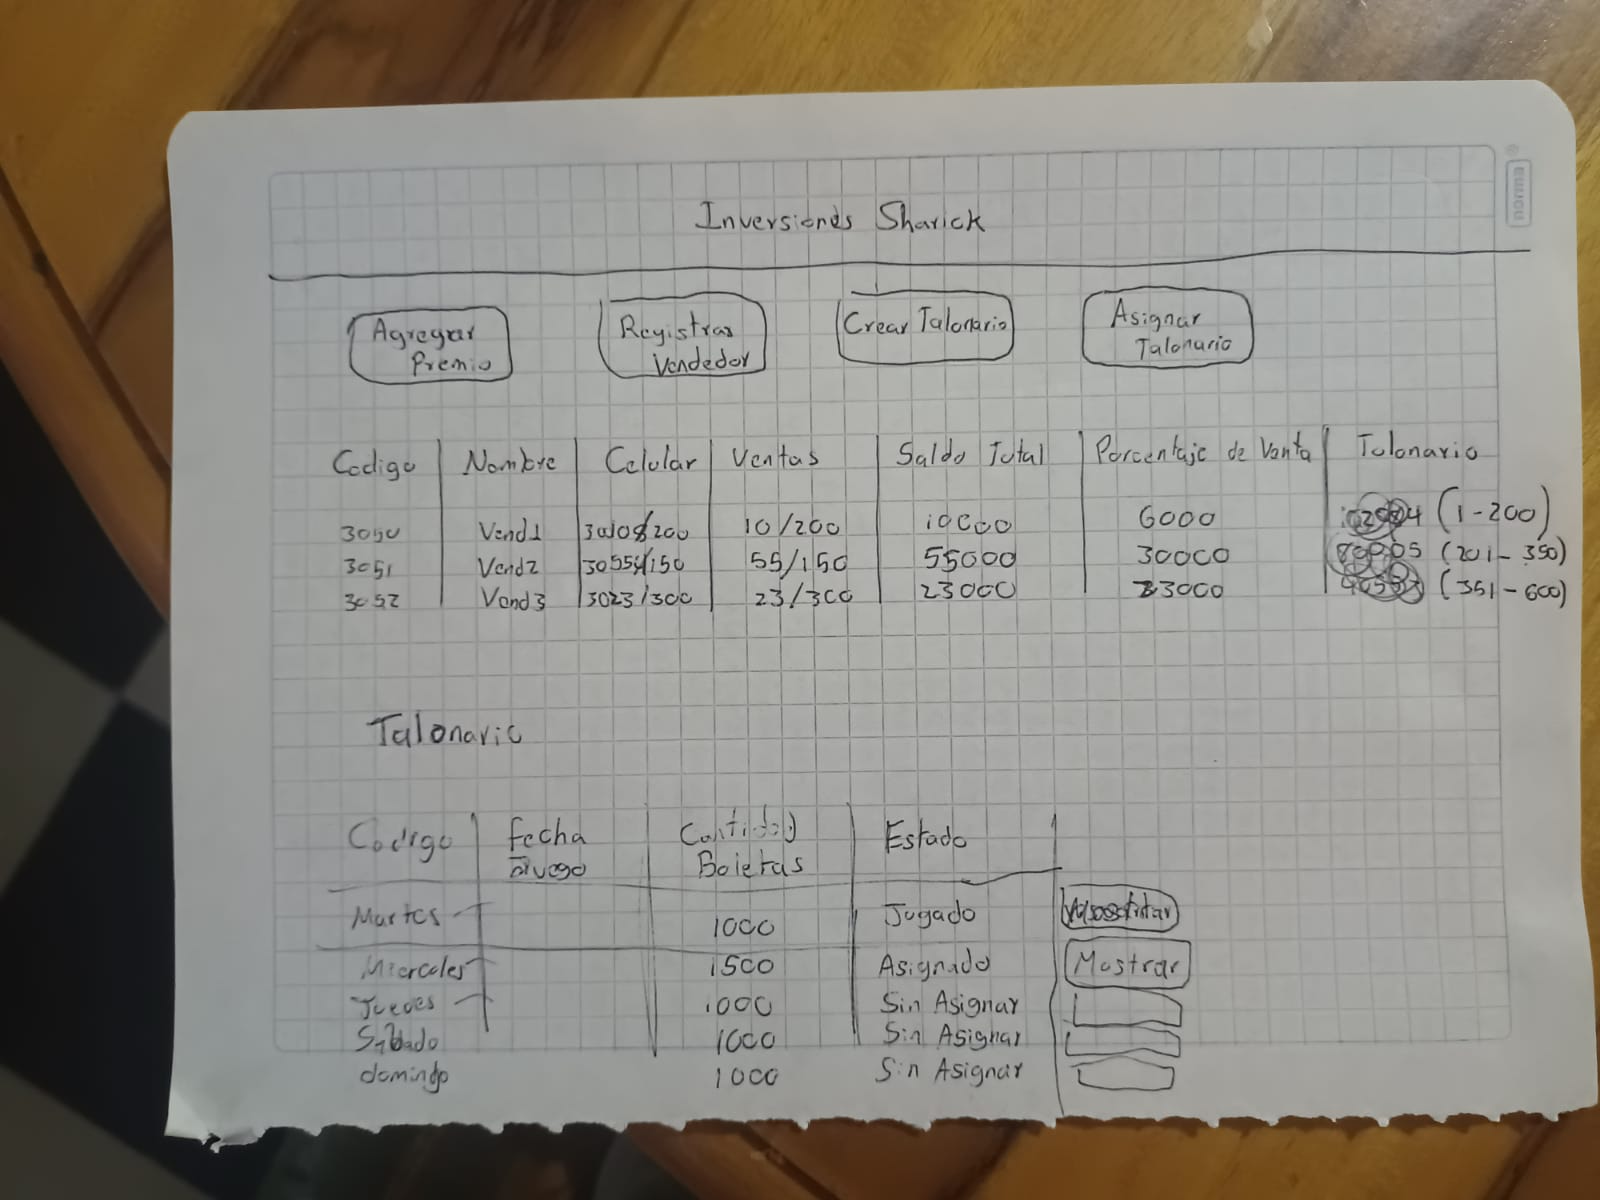 norma
Inversiones Sharick
Agregar Premio
Registrar Vendedor
Crear Talonario
Asignar Talonario
Codigo Nombre Celular Ventas Saldo Total Porcentaje de Venta Talonario
3050 Vend1 10/200 10000 6000 (1-200)
3051 Vend2 55/150 55000 30000 (201-350)
3052 Vend3 3023/300 23/300 23000 (351-600)
Talonario
Codigo Fecha Juego Cantidad Boletas Estado
Martes 1000 Jugado
Miercoles 1500 Asignado Mostrar
Jueves 1000 Sin Asignar
Sabado 1000 Sin Asignar
domingo 1000 Sin Asignar